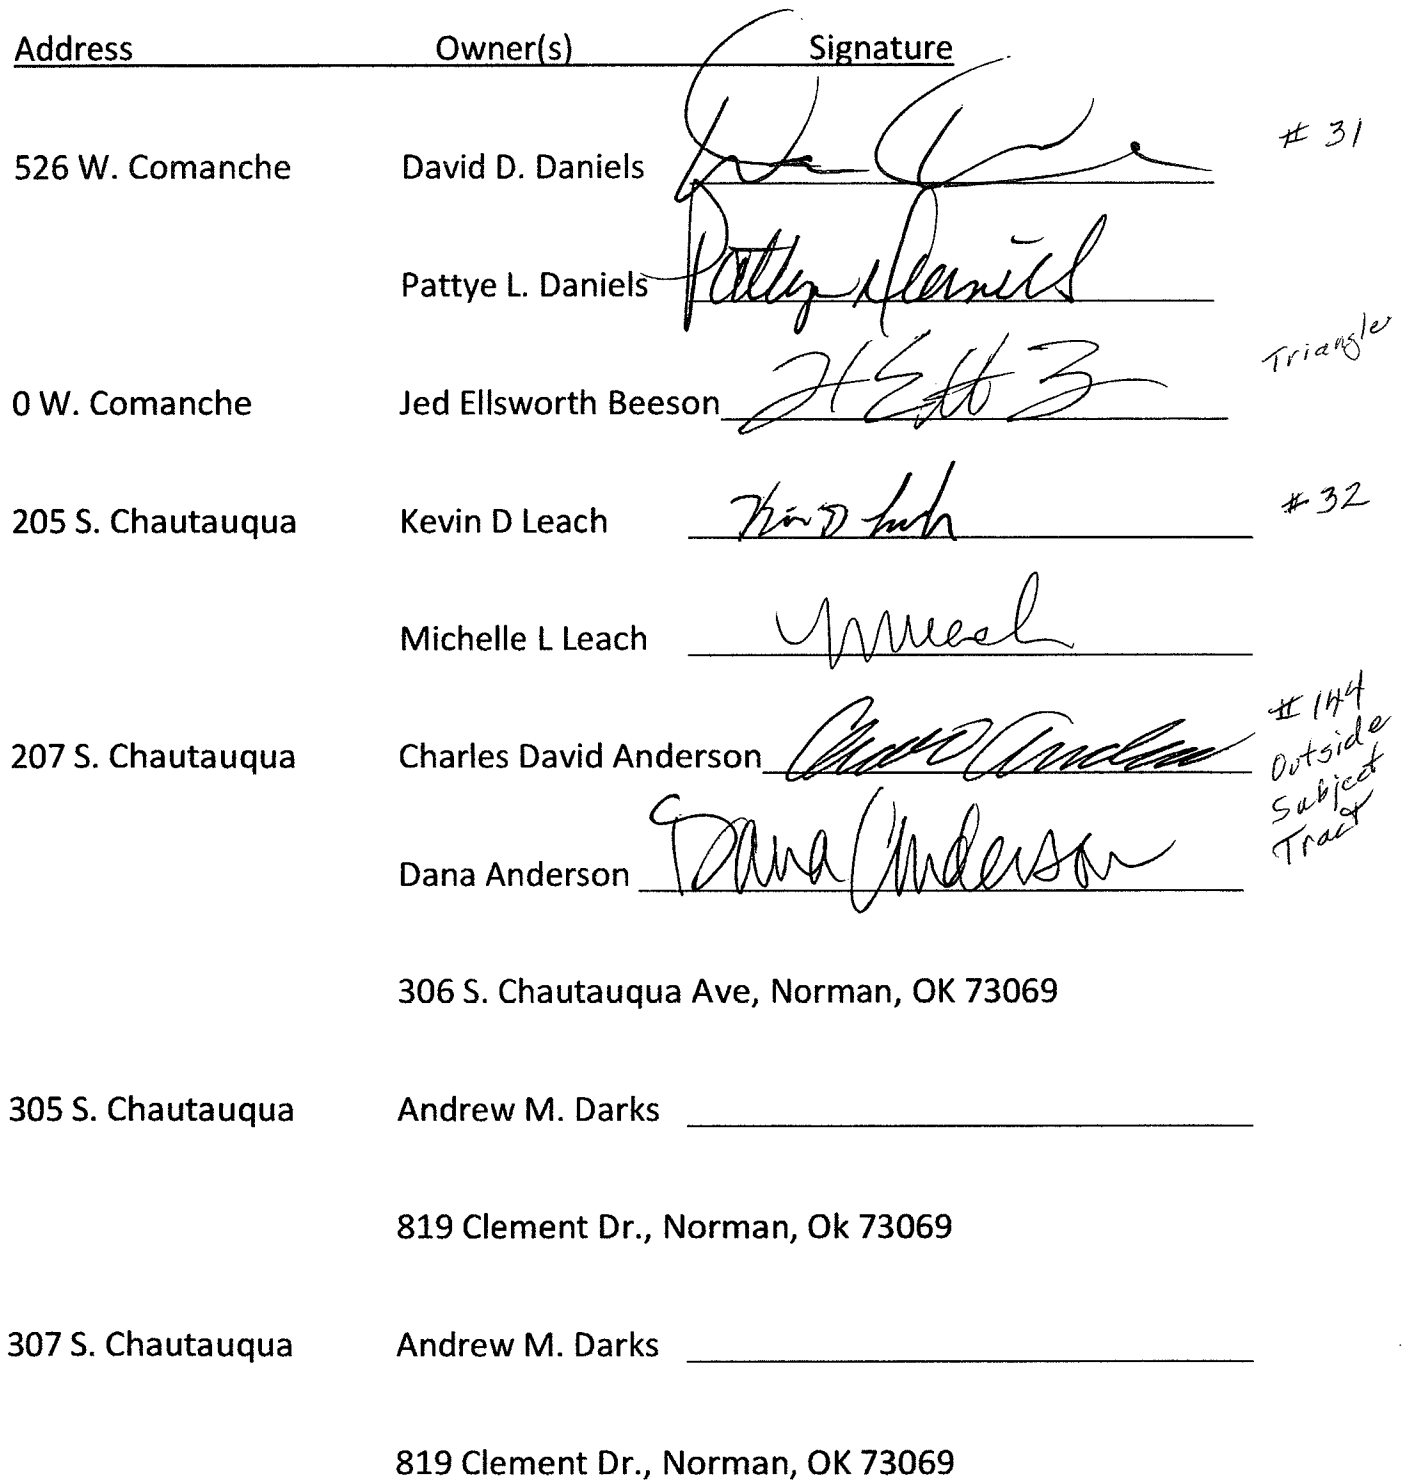 Address Owner(s) Signature
526 W. Comanche David D. Daniels # 31
Pattye L. Daniels Pattye Daniels
Triangle
0 W. Comanche Jed Ellsworth Beeson
205 S. Chautauqua Kevin D Leach # 32
Michelle L Leach
207 S. Chautauqua Charles David Anderson # 144
Outside
Subject
Tract
Dana Anderson Dana Anderson
306 S. Chautauqua Ave, Norman, OK 73069
305 S. Chautauqua Andrew M. Darks
819 Clement Dr., Norman, Ok 73069
307 S. Chautauqua Andrew M. Darks
819 Clement Dr., Norman, OK 73069